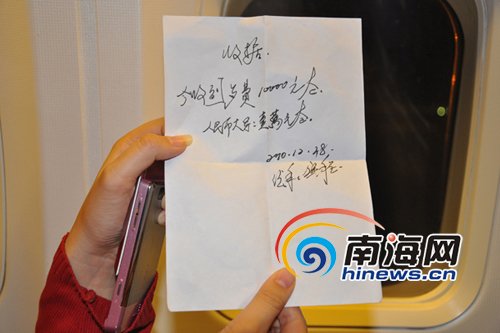 收据
今收到 员10000元整.
人民币大写:壹万元整.
2010.12.28.
南海网
hinews.cn